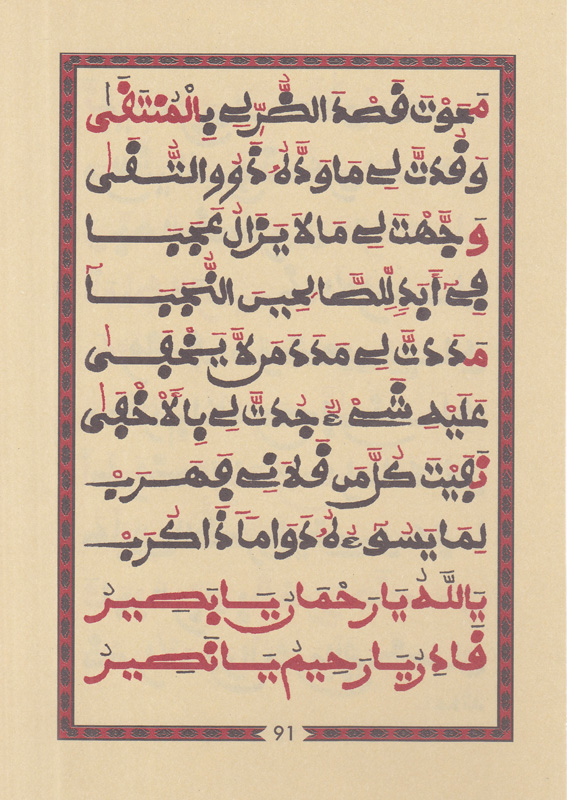 مَحَوْتَ قَصْدَ الضُّرِّ لِي بِالْمُنْتَقَى
وَقُدتَّ لِي مَا وَدَّهُ ذَوُو التُّقَى
وَجَّهْتَ لِي مَا لَا يَزَالُ عَجَبَا
فِي أَبَدٍ لِّلصَّالِحِينَ النُّجَبَا
مَدَدتَّ لِي مَدَدَ مَن لَّا يَخْفَى
عَلَيْهِ شَيْءٌ جُدتَّ لِي بِالْأَخْفَى
نَفَيْتَ كُلَّ مَن قَلَانِي فَهَرَبْ
لِمَا يَسُوءُهُ دَوَامًا ذَا كَرَبْ
يَا اللَّهُ يَا رَحْمَانُ يَا بَصِيرُ
قَادِرُ يَا رَحِيمُ يَا نَصِيرُ
91